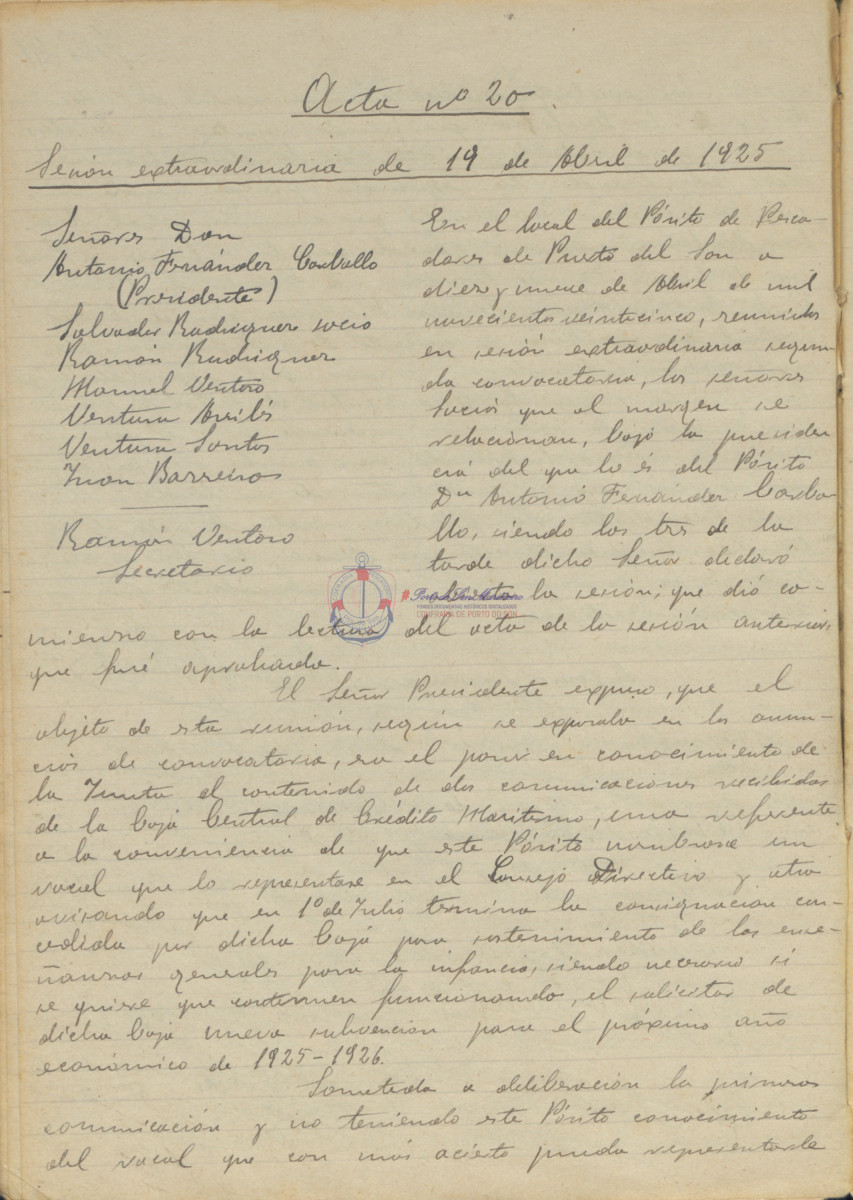 Acta nº 20.
Sesión extraordinaria de 19 de Abril de 1925
Señores Don
Antonio Fernández Carballo
(Presidente)
Salvador Rodriguez socio
Ramón Rodriguez
Manuel Ventoso
Ventura Avilés
Ventura Santos
Juan Barreiros
Ramón Ventoso
Secretario
En el local del Pósito de Pesca-
dores de Puerto del Son a
diez y nueve de Abril de mil
novecientos veinticinco, reunidos
en sesión extraordinaria segun-
da convocatoria, los señores
Socios que al margen se
relacionan, bajo la presiden
cia del que lo es del Pósito
Dn Antonio Fernández Carba-
llo, siendo las tres de la
tarde dicho Señor declaró
abierta la sesión; que dió co-
mienzo con la lectura del acta de la sesión anterior,
que fué aprobada.
El Señor Presidente expuso, que el
objeto de esta reunión, según se expresaba en los anun-
cios de convocatoria, era el poner en conocimiento de
la Junta el contenido de dos comunicaciones recibidas
de la Caja Central de Crédito Maritimo, una referente
a la conveniencia de que este Pósito nombrase un
vocal que lo representase en el Consejo Directivo y otra
avisando que en 1º de Julio termina la consignacion con-
cedida por dicha Caja para sostenimiento de las ense-
ñanzas generales para la infancia, siendo necesario si
se quiere que continuen funcionando, el solicitar de
dicha Caja nueva subvención para el próximo año
económico de 1925-1926.
Sometida a deliberación la primera
comunicación y no teniendo este Pósito conocimiento
del vocal que con más acierto pueda representarle
CONFRARÍA DE PORTO DO SON